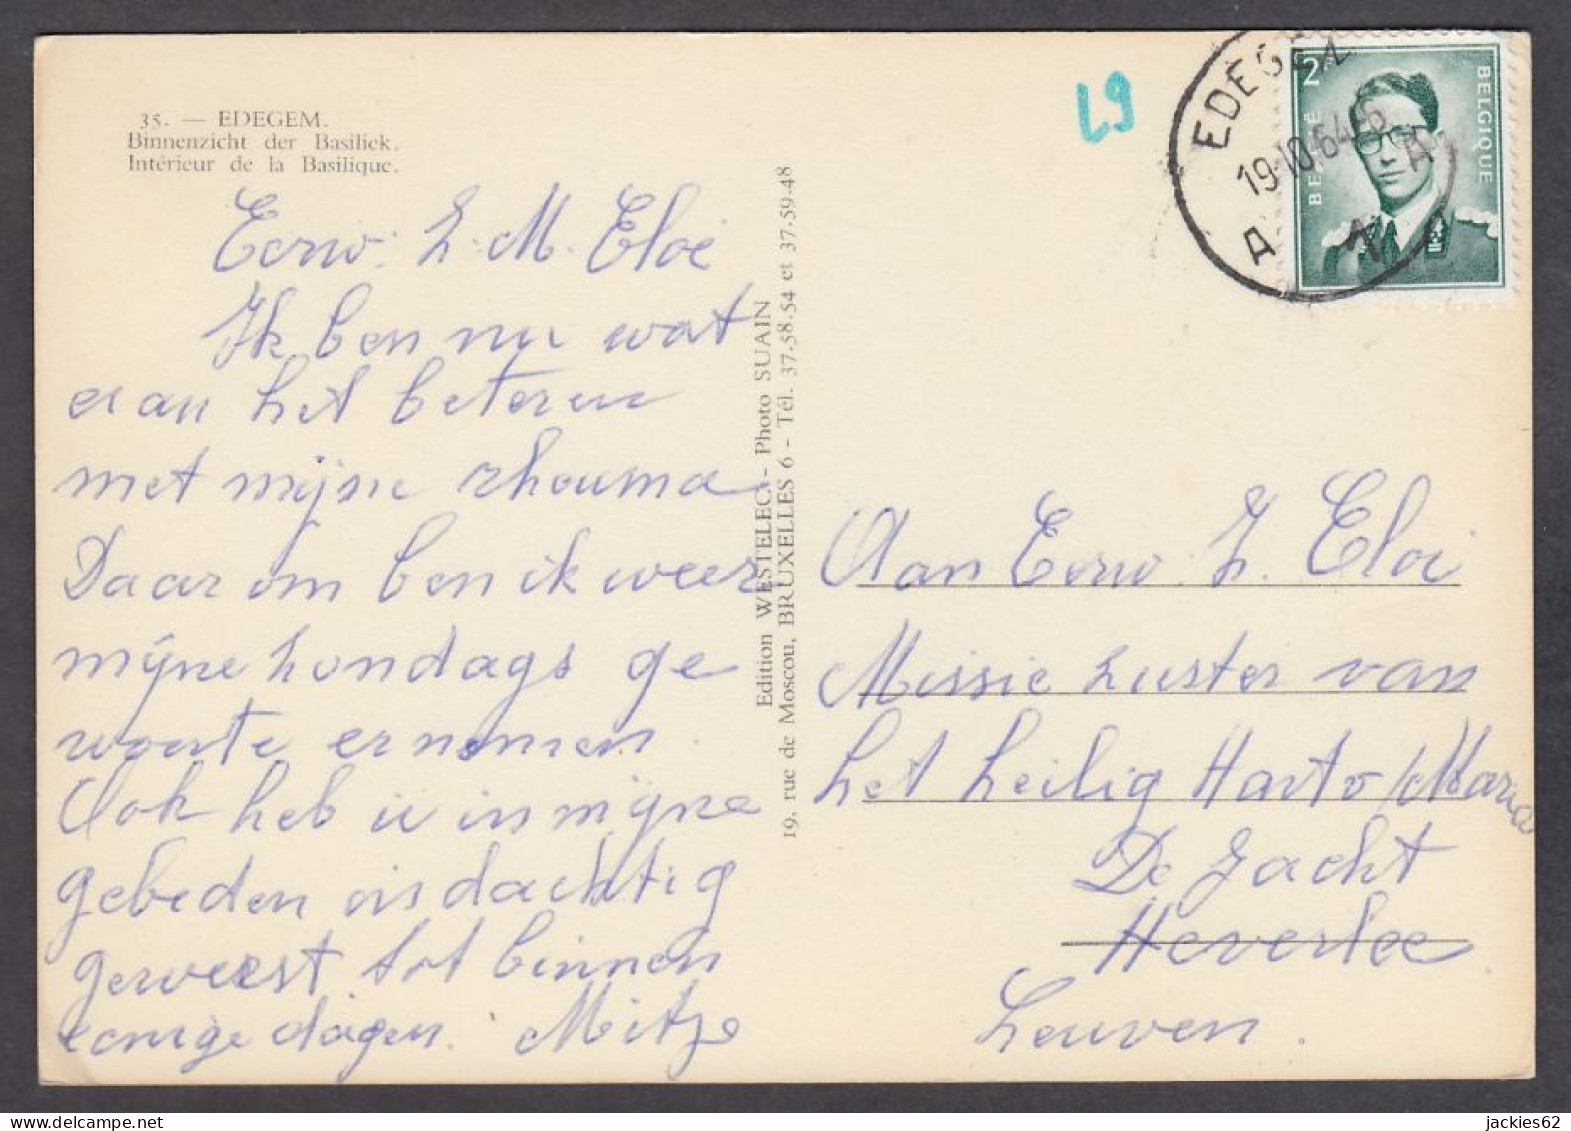 35. — EDEGEM.
Binnenzicht der Basiliek.
Intérieur de la Basilique.
Eerw. Z. M. Eloi
Ik ben nu wat
eraan het beteren
met mijne rheuma
Daarom ben ik weer
mijne hondags ge
woonte ernemen
Ook heb ü in mijne
gebeden aisdachtig
geweest tot binnen
eenige dagen. Mitje
Edition WESTELEC - Photo SUAIN
19, rue de Moscou, BRUXELLES 6 - Tél. 37.58.54 et 37.59.48
L9
EDEGEM
19-10 64
A 1 A
2F
BELGIE
BELGIQUE
Aan Eerw. Z. Eloi
Missie zuster van
het heilig Hart v Maria
De Jacht
Heverlee
Leuven.
jackies62